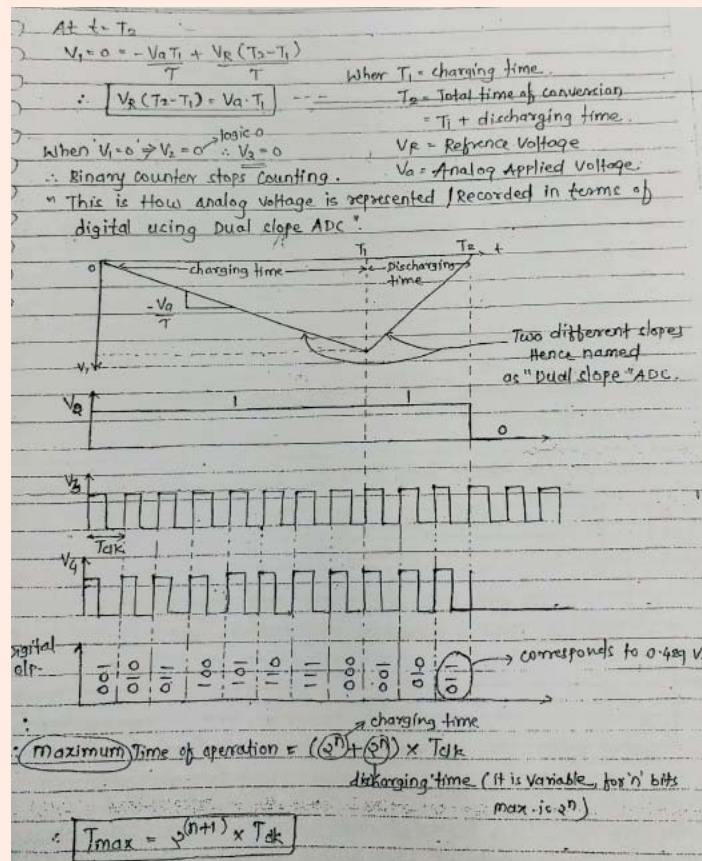 At t = T2
V1 = 0 = -VaT1/T + VR(T2-T1)/T
∴ VR(T2-T1) = Va·T1 ---
Wher T1 = charging time.
T2 = Total time of conversion
= T1 + discharging time.
VR = Refrence Voltage
Va = Analog Applied Voltage.
logic 0
When 'V1=0' ⇒ V2 = 0 ∴ V3 = 0
∴ Binary counter stops counting.
" This is How analog voltage is represented / Recorded in terms of
digital using Dual slope ADC ".
T1 T2 t
0 charging time Discharging
time
-Va/T
V1
Two different slopes
Hence named
as "Dual slope" ADC.
V2 1 1 0
V3
Tclk
V4
Digital
o/p-
001 010 011 100 101 110 111 000 001 010 011
corresponds to 0.489 V
charging time
∴ maximum Time of operation = (2^n + 2^n) × Tclk
discharging time (it is variable, for 'n' bits
max. is 2^n)
∴ Tmax = 2^(n+1) × Tclk